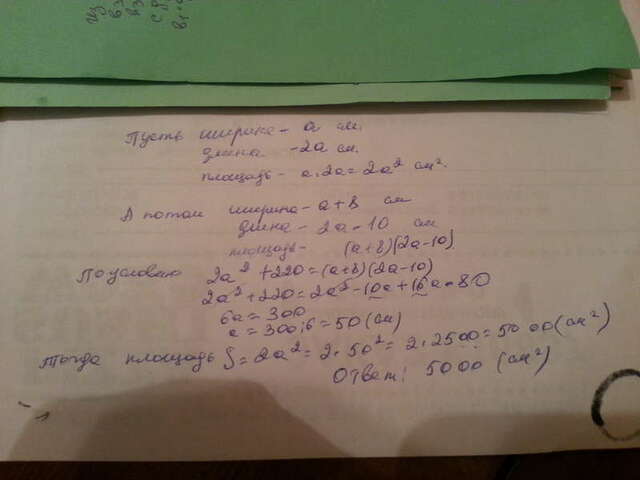 Пусть ширина - a см.
длина - 2a см.
площадь - a.2a = 2a² см².
А потом ширина - a+8 см
длина - 2a-10 см
площадь - (a+8)(2a-10)
По условию 2a² + 220 = (a+8)(2a-10)
2a² + 220 = 2a² - 10a + 16a - 80
6a = 300
a = 300:6 = 50 (см)
Тогда площадь S = 2a² = 2.50² = 2.2500 = 5000 (см²)
Ответ: 5000 (см²)